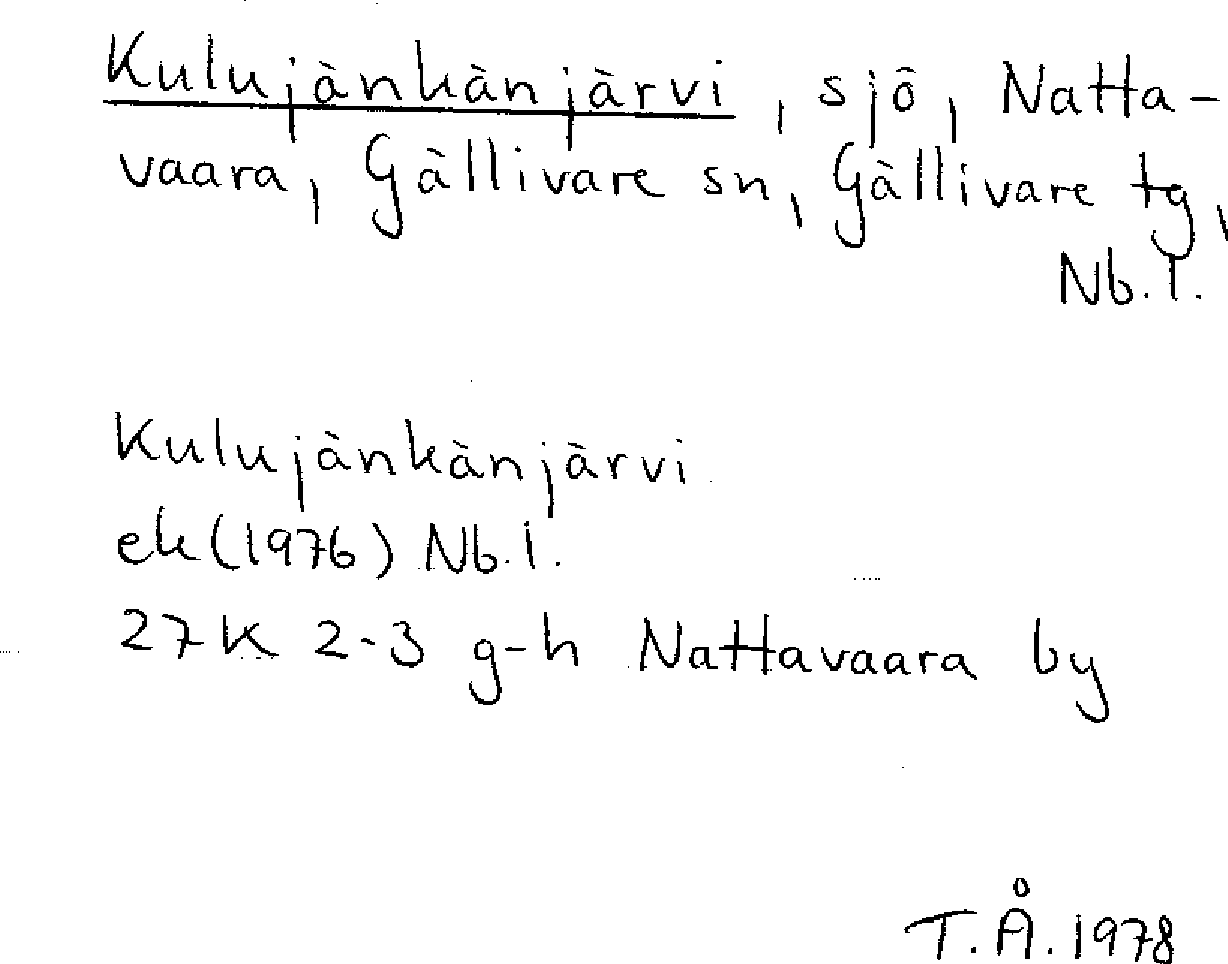 Kulujänkänjärvi, sjö, Natta-
vaara, Gällivare sn, Gällivare tg,
Nb. l.
Kulujänkänjärvi
ek (1976) Nb. l.
27K 2-3 g-h Nattavaara by
T.Å. 1978